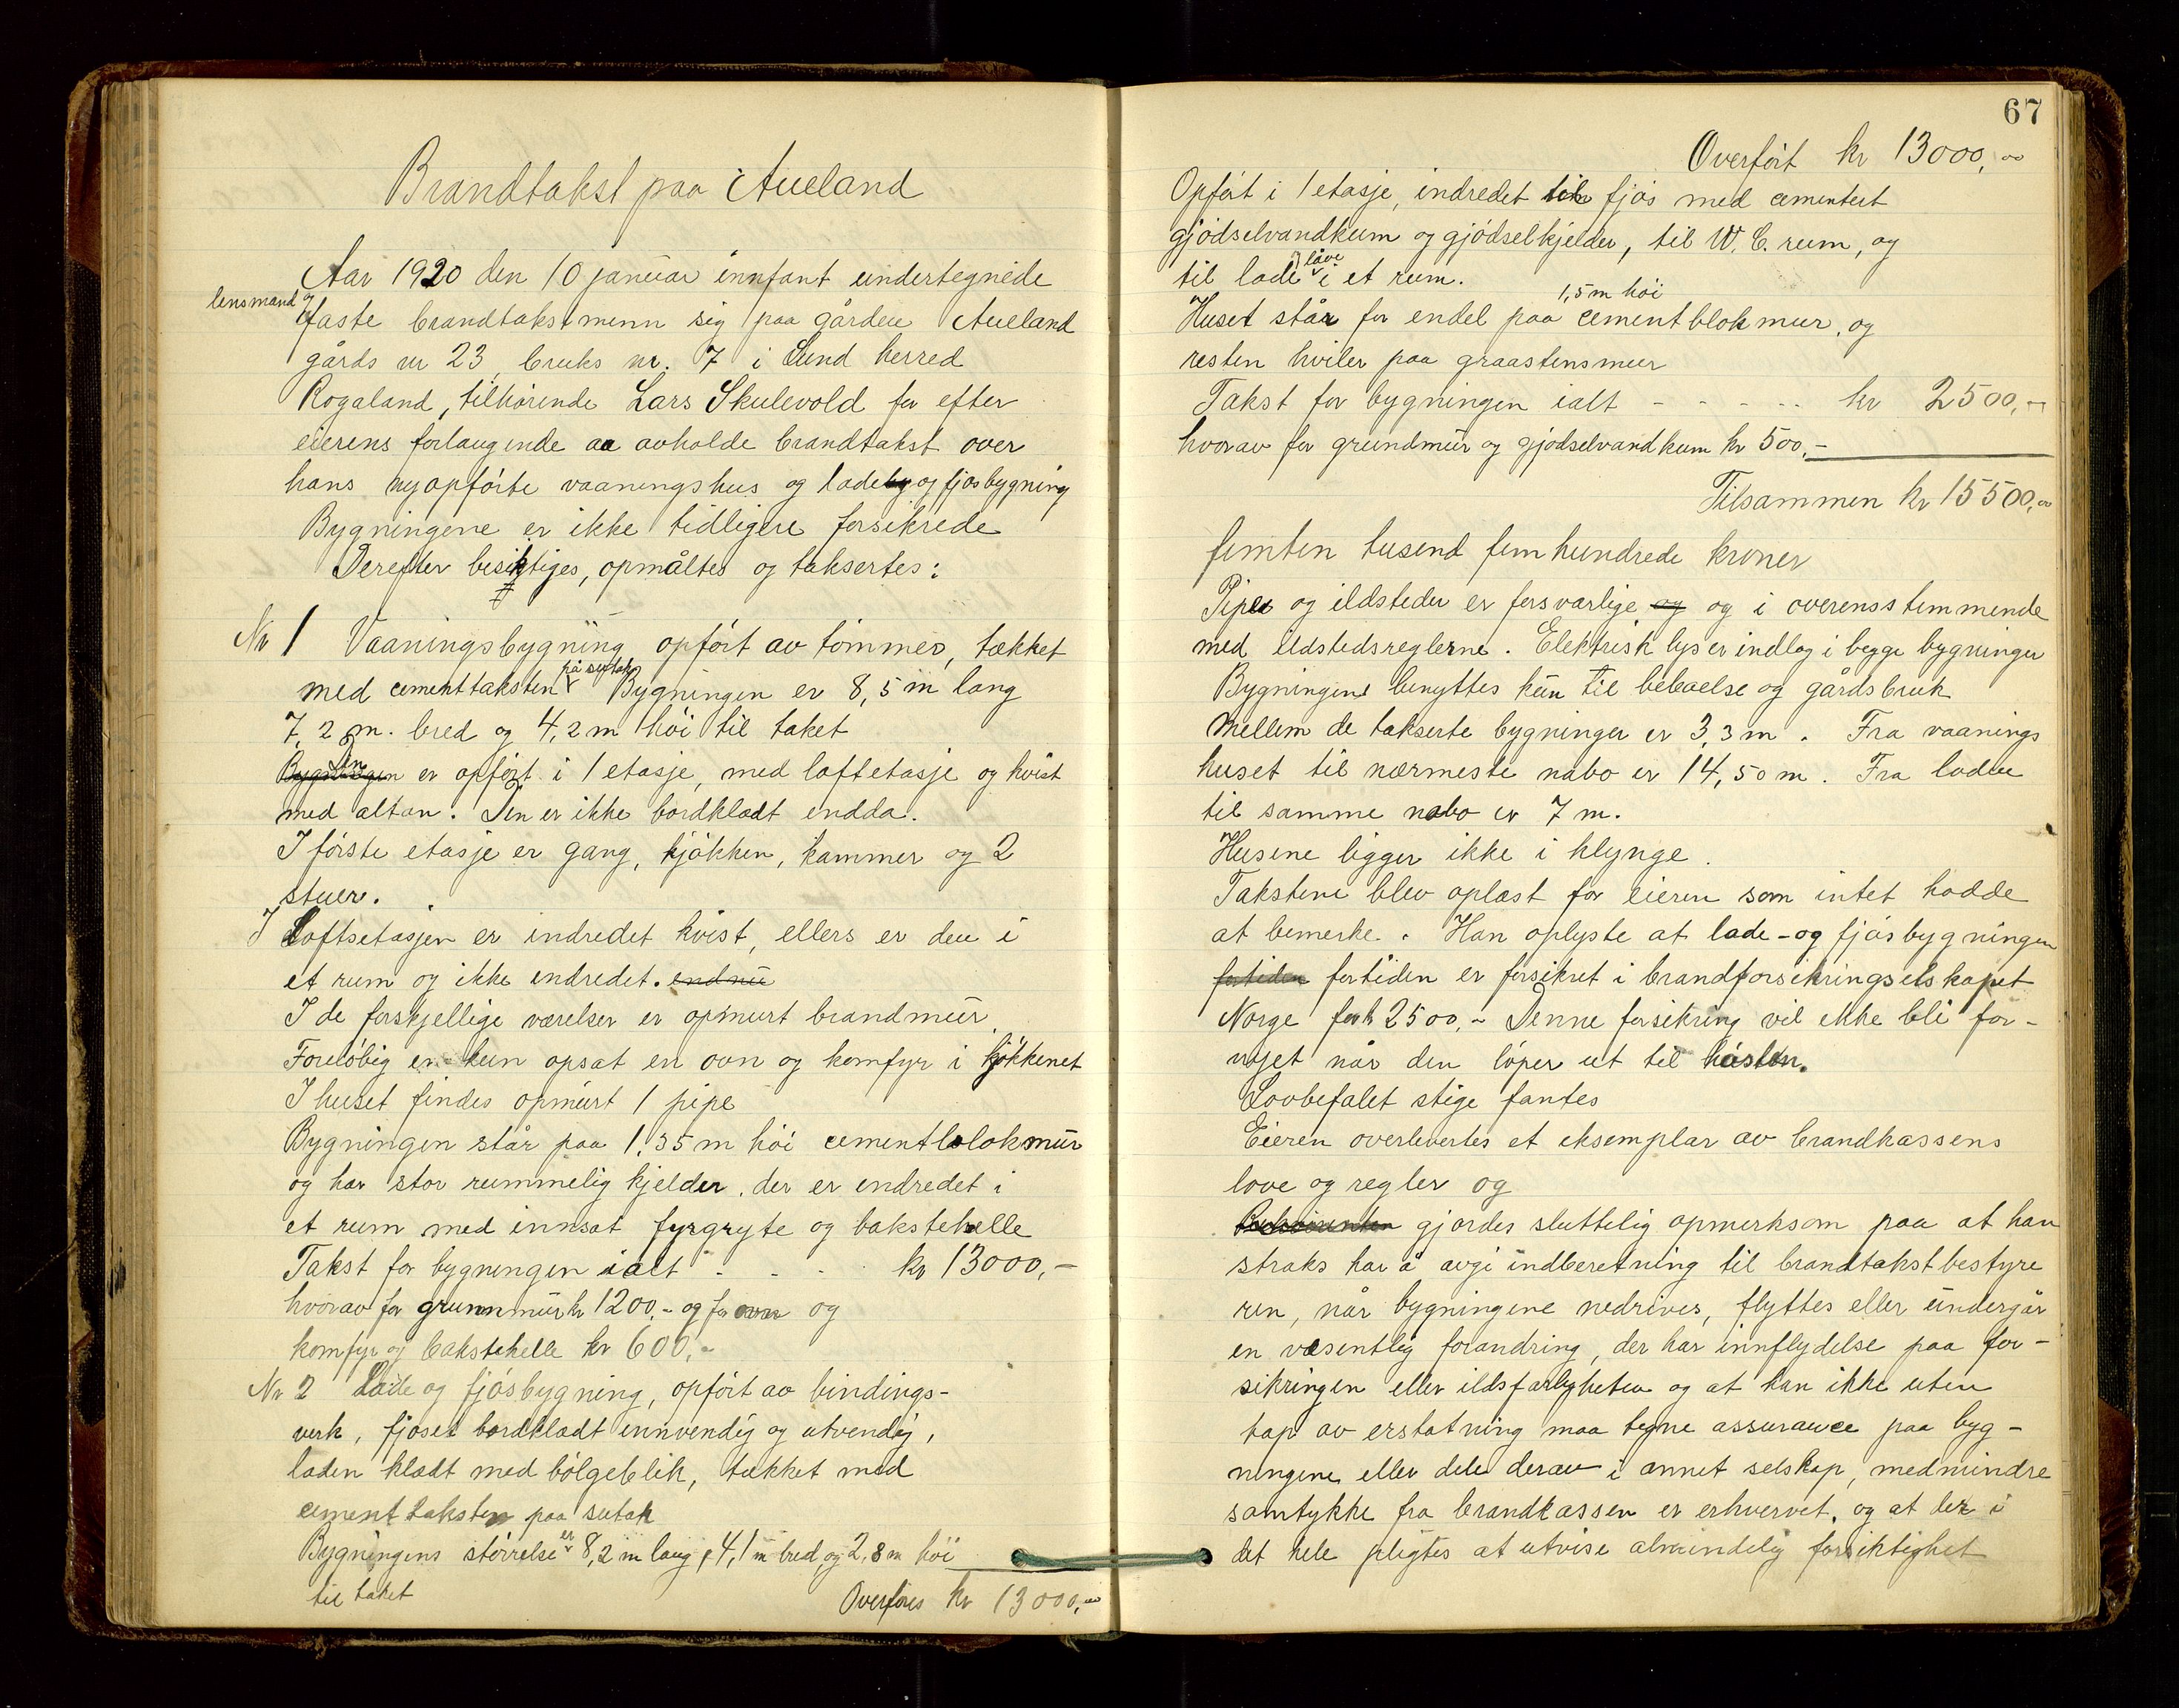 Brandtakst paa Aueland
Aar 1920 den 10 januar innfant undertegnede
lensmand og
faste brandtakstmenn sig paa gården Aueland
gårds nr 23, bruks nr. 7 i Lund herred
Rogaland, tilhørende Lars Skulevold for efter
eierens forlangende aa avholde brandtakst over
hans nyopførte vaaningshus og lade og fjøsbygning
Bygningene er ikke tidligere forsikrede
Derefter besiktiges, opmåltes og taksertes:
Nr 1 Vaaningsbygning opført av tømmer, tækket
med cementtaksten på sutak Bygningen er 8,5 m lang
7,2 m. bred og 4,2 m høi til taket
Bygningen Den er opført i 1 etasje, med loftetasje og kvist
med altan. Den er ikke bordklædt endda.
I første etasje er gang, kjøkken, kammer og 2
stuer.
I Loftsetasjen er indredet kvist, ellers er den i
et rum og ikke indredet. endnu
I de forskjellige værelser er opmurt brandmur
Foreløbig er kun opsat en ovn og komfyr i kjøkkenet
I huset findes opmurt 1 pipe
Bygningen står paa 1,35 m høi cementblokmur
og har stor rummelig kjelder, der er endredet i
et rum med innsat fyrgryte og bakstehelle
Takst for bygningen ialt - - - kr 13000,-
hvorav for grunnmur kr 1200,- og for ovn og
komfyr og bakstehelle kr 600,-
Nr 2 Lade og fjøsbygning, opført av bindings-
verk, fjøset bordklædt innvendig og utvendig,
laden klædt med bølgeblik, tækket med
cementtaksten paa sutak
Bygningens størrelse er 8,2 m lang, 4,1 m bred og 2,8 m høi
til taket
Overføres kr 13000,00
67
Overført kr 13000,00
Opført i 1 etasje, indredet til fjøs med cementert
gjødselvandkum og gjødselkjelder, til W.C. rum, og
til lade og låve i et rum.
Huset står for endel paa 1,5 m høi cementblokmur, og
resten hviler paa graastensmur
Takst for bygningen ialt - - - - - kr 2500,-
hvorav for grundmur og gjødselvandkum kr 500,-
Tilsammen kr 15500,00
femten tusend femhundrede kroner
Piper og ildsteder er forsvarlige og og i overensstemmende
med Ildstedsreglerne. Elektrisk lys er indlag i begge bygninger
Bygningene benyttes kun til beboelse og gårdsbruk
Mellem de takserte bygninger er 3,3 m. Fra vaanings
huset til nærmeste nabo er 14,50 m. Fra laden
til samme nabo er 7 m.
Husene ligger ikke i klynge.
Takstene blev oplæst for eieren som intet hadde
at bemerke. Han oplyste at lade- og fjøsbygningen
fortiden fortiden er forsikret i brandforsikringselskapet
Norge for kr 2500,- Denne forsikring vil ikke bli for-
nyet når den løper ut til høsten.
Lovbefalet stige fantes
Eieren overlevertes et eksemplar av brandkassens
love og regler og
gjordes sluttelig opmerksom paa at han
straks har å avgi indberetning til brandtakstbestyre
ren, når bygningene nedrives, flyttes eller undergår
en væsentlig forandring, der har innflydelse paa for-
sikringen eller ildsfarligheten og at han ikke uten
tap av erstatning maa tegne assurance paa byg-
ningene eller dele derav i annet selskap, medmindre
samtykke fra brandkassen er erhvervet, og at der i
det hele pligtes at utvise almindelig forsiktighet